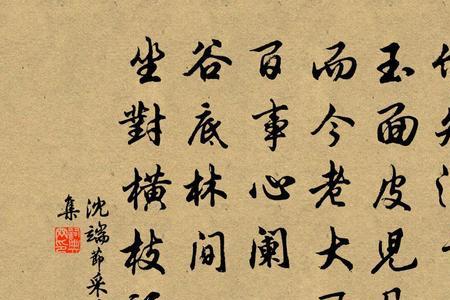 玉面皮兒
而今老大
百事心闌
谷底林間
坐對橫枝
沈端節采
集